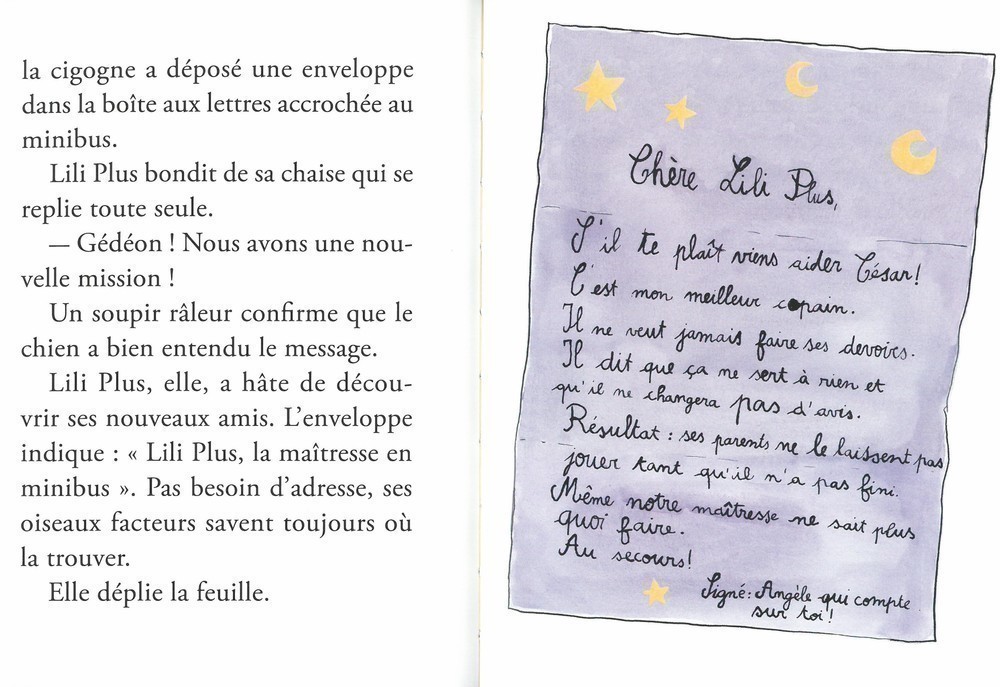 la cigogne a déposé une enveloppe
dans la boîte aux lettres accrochée au
minibus.
Lili Plus bondit de sa chaise qui se
replie toute seule.
— Gédéon ! Nous avons une nou-
velle mission !
Un soupir râleur confirme que le
chien a bien entendu le message.
Lili Plus, elle, a hâte de décou-
vrir ses nouveaux amis. L'enveloppe
indique : « Lili Plus, la maîtresse en
minibus ». Pas besoin d'adresse, ses
oiseaux facteurs savent toujours où
la trouver.
Elle déplie la feuille.
Chère Lili Plus,
S'il te plaît viens aider César!
C'est mon meilleur copain.
Il ne veut jamais faire ses devoirs.
Il dit que ça ne sert à rien et
qu'il ne changera pas d'avis.
Résultat : ses parents ne le laissent pas
jouer tant qu'il n'a pas fini.
Même notre maîtresse ne sait plus
quoi faire.
Au secours!
Signé: Angèle qui compte
sur toi!